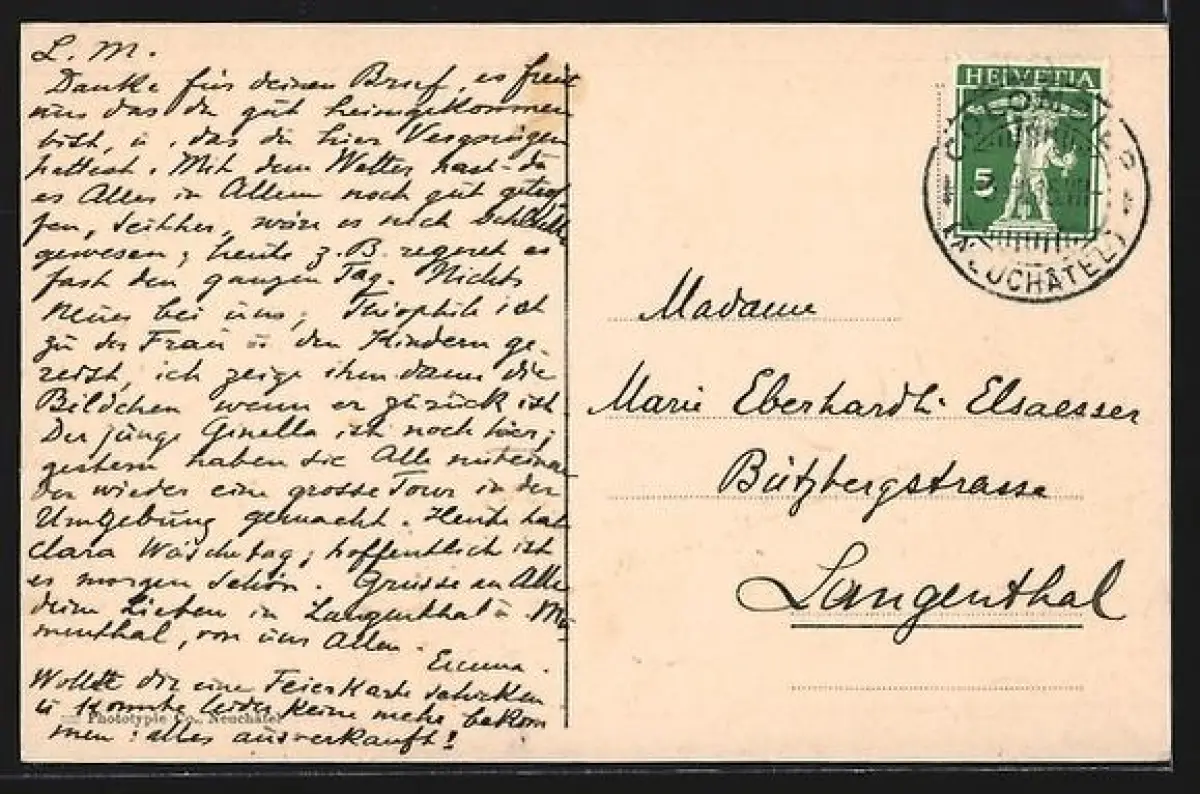 L. M.
Danke für deinen Brief, es freut
uns das du gut heimgekommen
bist, u. das du hier Vergnügen
hattest. Mit dem Wetter hast du
es Alles in Allem noch gut getrof
fen, seither, wäre es noch schlechter
gewesen; heute z. B. regnet es
fast den ganzen Tag. Nichts
Neues bei uns; Théophile ist
zu der Frau u den Kindern ge-
reist, ich zeige ihm dann die
Bildchen wenn er zurück ist.
Der junge Ginella ist noch hier;
gestern haben sie Alle miteinan
der wieder eine grosse Tour in der
Umgebung gemacht. Heute hat
Clara Wäschetag; hoffentlich ist
es morgen schön. Grüsse an Alle
deine Lieben in Langenthal u. Mu
menthal, von uns Allen.
Emma.
Wollte dir eine Feierkarte schicken
u konnte leider keine mehr bekom
men: alles ausverkauft!
Phototypie Co., Neuchâtel
HELVETIA
5
COLOMBIER
(NEUCHÂTEL)
Madame
Marie Eberhardt-Elsaesser
Bützbergstrasse
Langenthal